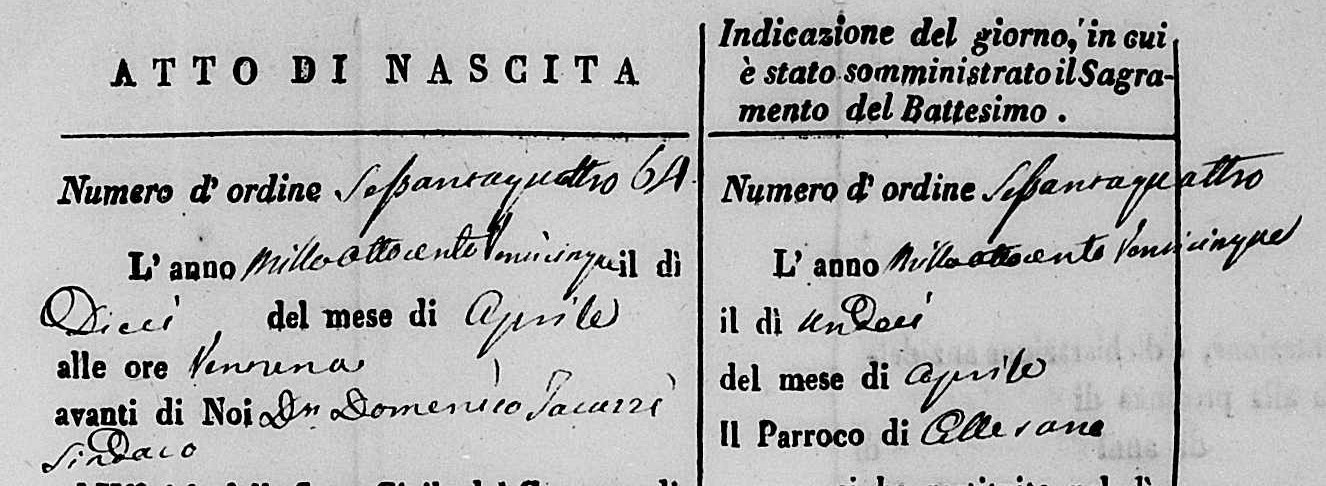 ATTO DI NASCITA
Numero d' ordine Sessantaquattro 64
L' anno Milleottocento Venticinque il dì
Dieci del mese di Aprile
alle ore Ventuna
avanti di Noi Dn Domenico
Sindaco
Indicazione del giorno, in cui
è stato somministrato il Sagra-
mento del Battesimo .
Numero d' ordine Sessantaquattro
L' anno Milleottocento Venticinque
il dì undeci
del mese di Aprile
Il Parroco di Collesano